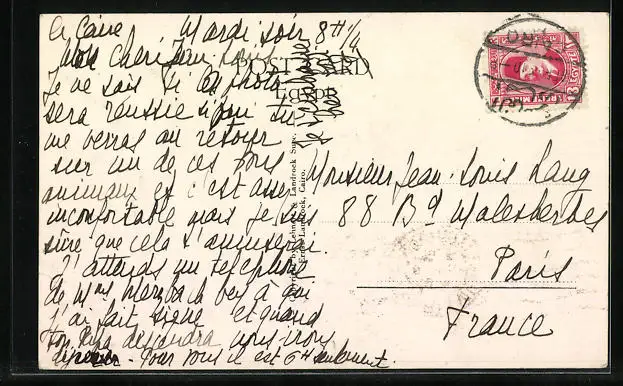 Le Caire Mardi soir 8H 1/4
Mon chéri Jean Louis
POST CARD
Je ne sais si la photo
EGYPT
sera réussie si tu
me verras au retour
sur un de ces bons
animaux et c'est assez
inconfortable mais je suis
sûre que cela t'amuserai.
J'attends un téléphone
de Mme Merzbach bey à qui
j'ai fait signe et quand
ton Papa descendra nous irons
Pour vous il est 6H seulement.
Lehnert & Landrock Succ.
Ernst Landrock, Cairo.
Monsieur Jean-Louis Lang
88 Bd Malesherbes
Paris
France